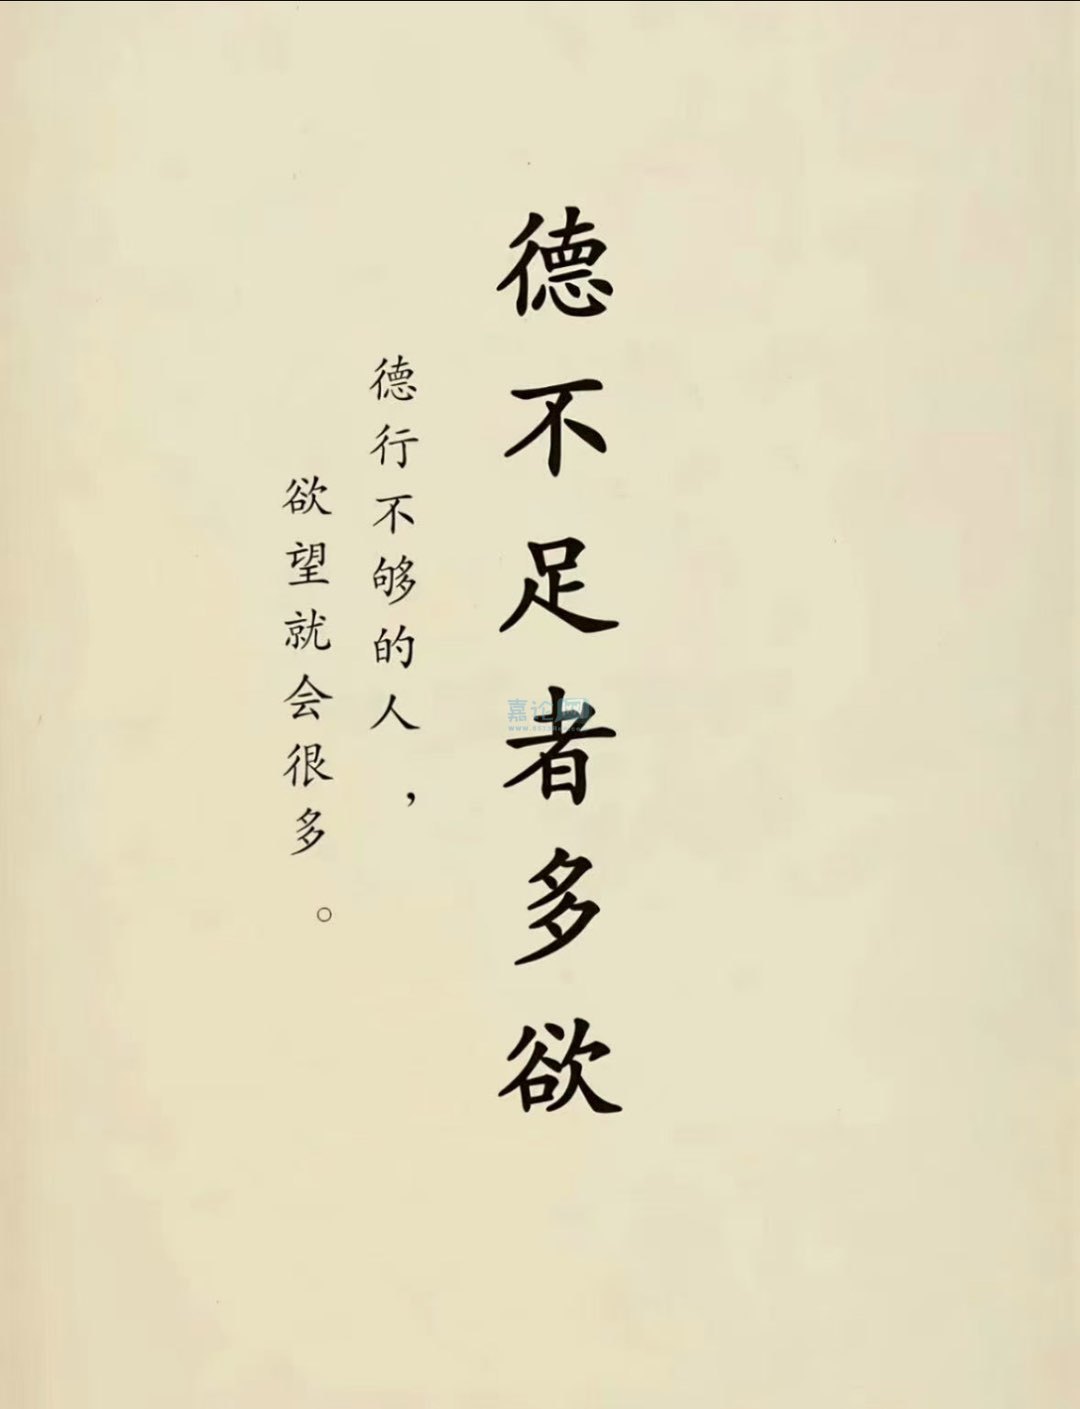 德不足者多欲
德行不够的人，
欲望就会很多。
嘉论网